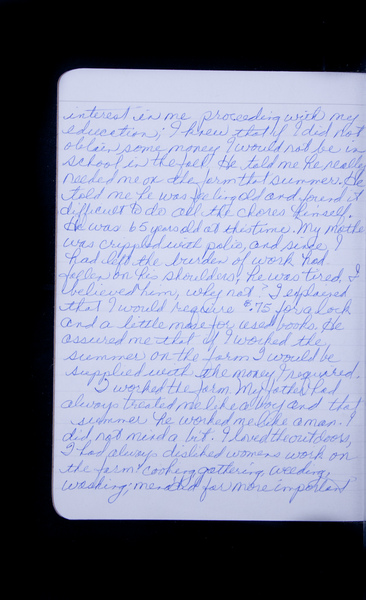 interest in me proceeding with my
education; I knew that if I did not
obtain some money I would not be in
school in the fall. He told me he really
needed me on the farm that summer. He
told me he was feeling old and found it
difficult to do all the chores himself.
He was 65 years old at this time. My mother
was crippled with polio, and since I
had left the burden of work had
fallen on his shoulders. He was tired, I
believed him, why not? I explained
that I would require $.75 for a lock
and a little more for used books. He
assured me that if I worked the
summer on the farm I would be
supplied with the money I required.
I worked the farm. My father had
always treated me like a boy and that
summer he worked me like a man. I
did not mind a bit. I loved the outdoors,
I had always disliked womens work on
the farm: cooking, gathering, weeding,
washing; men did far more important